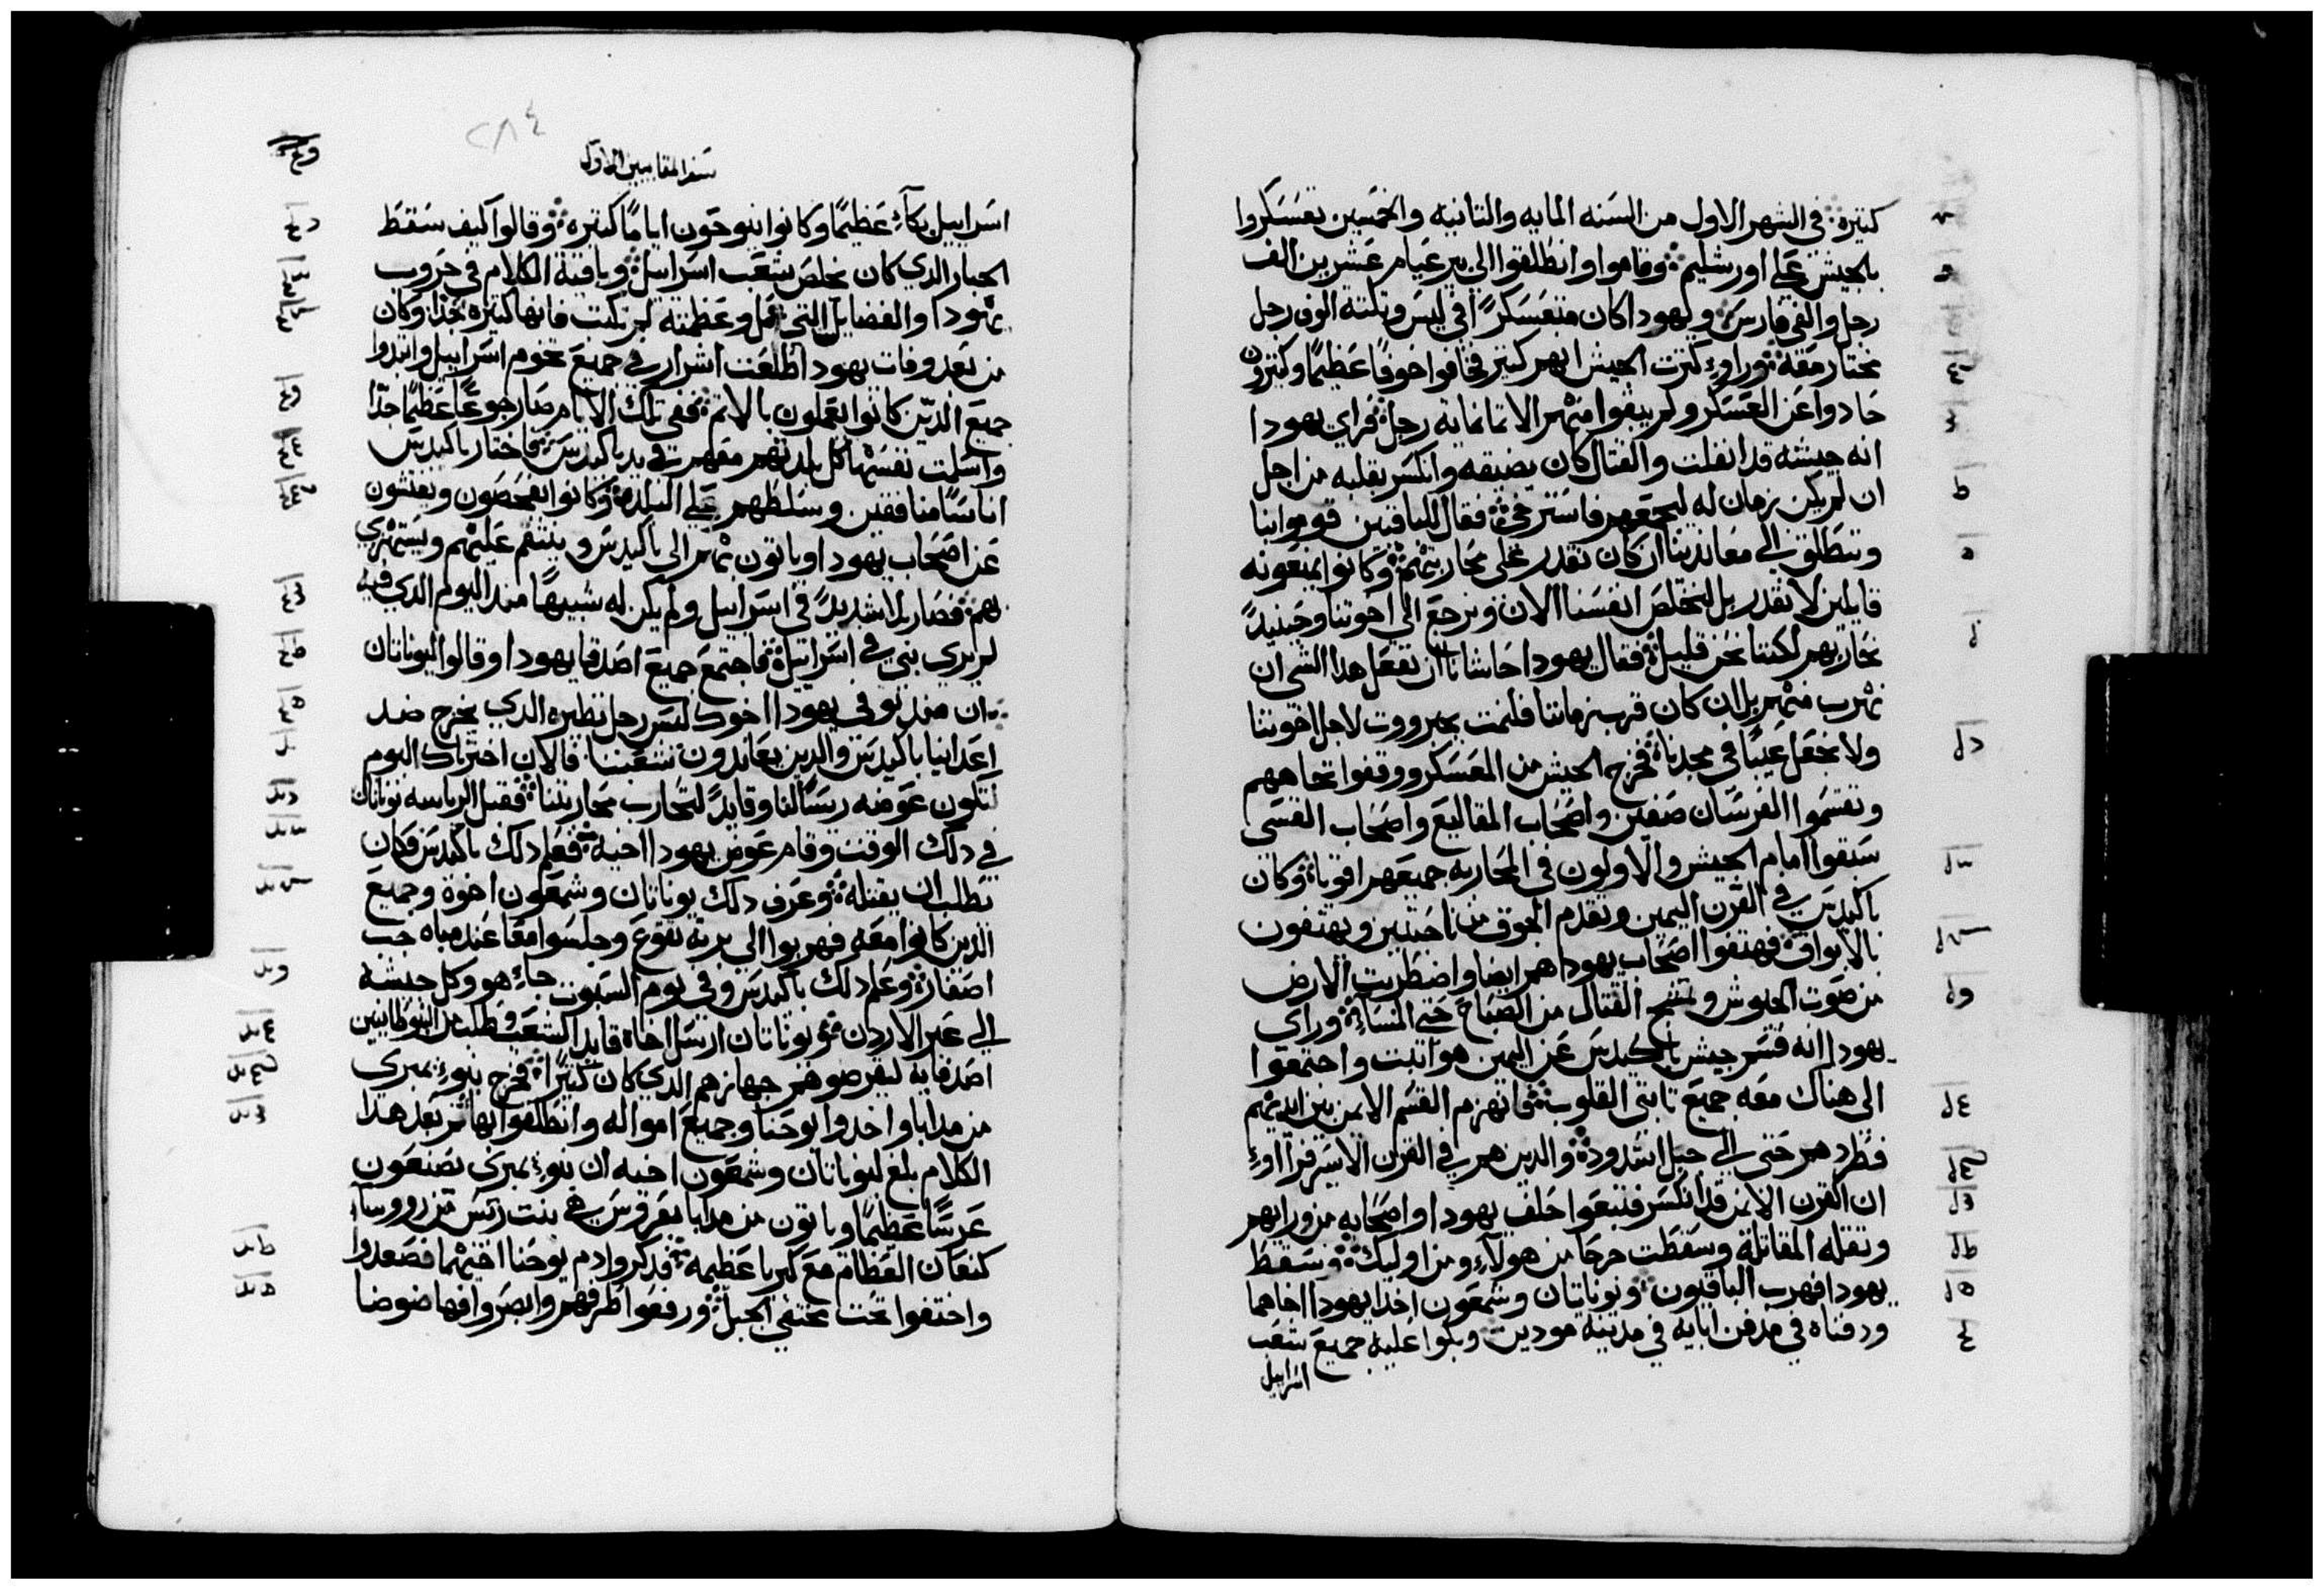 كثيرة في الشهر الاول من السنه المايه والتانيه والخمسين تعسكروا
بالجيش علي اورشليم وقاموا وانطلقوا الي بيرعيام عشرين الف
رجل والفي فارس ويهودا كان متعسكرًا في ليس وتلتة الوف رجل
مختار معه وراوا كترت الجيش انهم كتير فخافوا خوفًا عظيمًا وكتيرون
حادوا عن العسكر ولم يبقوا منهم الا تمانمايه رجل فراي يهودا
انه جيشه قد انفلت والقتال كان يضيقه وانكسر بقلبه من اجل
ان لم يكن زمان له ليجمعهم فاسترخي فقال للباقيين قوموا بنا
وننطلق الي معاندينا ان كان نقدر علي محاربتهم وكانوا يمنعونه
قايلين لا نقدر بل لنخلص انفسنا الان ونرجع الي اخوتنا وحينيدً
نحاربهم لكننا نحن قليل فقال يهودا حاشانا ان نفعل هدا الشي ان
نهرب منهم بل ان كان قرب زماننا فلنمت بجبرووت لاجل اخوتنا
ولا نجعل عيبًا في مجدنا فخرج الجيش من المعسكر ووقفوا تجاههم
وتقسموا الفرسان صفين واصحاب المقاليع واصحاب القسي
سبقوا امام الجيش والاولون في المحاربه جميعهم اقويا وكان
باكيدس في القرن اليمين وتقدم الجوق من ناحيتين ويهتفون
بالابواق فهتفوا اصحاب يهودا هم ايضا واضطربت الارض
من صوت الجيوش القتال من الصباح حتي المساء وراي
يهودا انه قسم جيش باكيدس عن اليمين هو اتبت واجتمعوا
الي هناك معه جميع تابتي القلوب فانهزم القسم الايمن بين ايديهم
فطردهم حتي الي جبل اشدود والدين هم في القرن الايسر فراوا
ان القرن الايمن قد انكسر فتبعوا خلف يهودا واصحابه من وراهم
وتقله المقاتلة وسقطت جرحا من هولاء ومن اوليك وسقط
يهودا فهرب الباقيون ويوناتان وشمعون اخدا يهودا اخاهما
ودفناه في مدفن ابايه في مدينة مودين وبكوا عليه جميع شعب
اسراييل
سفر المقابيين الاول
٢٨٤
اسراييل بكاءً عظيمًا وكانوا ينوحون ايامًا كتيره وقالوا كيف سقط
الجبار الدي كان يخلص شعب اسراييل وباقية الكلام في حروب
يهودا والفضايل التي عمل وعظمته لم تكتب فانها كتيره جدا وكان
من بعد وفات يهودا اطلعت اشرار في جميع تخوم اسراييل وابتدوا
جميع الدين كانوا يعملون بالاتم ففي تلك الايام صار جوعًا عظيمًا جدًا
واسلمت نفسها كل بلدتهم معهم في يد باكيدس فاختار باكيدس
اناسًا منافقين وسلطهم علي البلدة وكانوا يفحصون ويفتشون
عن اصحاب يهودا وياتون بهم الي باكيدس وينتقم عليهم ويستهزي
بهم فصار بلا شديدً في اسراييل ولم يكن له شبيهًا مند اليوم الدي فيه
لم يري نبي في اسراييل فاجتمع جميع اصدقا يهودا وقالوا ليوناتان
ان مند توفي يهودا اخوك ليس رجل نظيره الدي يخرج ضد
اعداينا باكيدس والدين يعاندون شعبنا فالان اخترناك اليوم
لتكون عوضه ريسًا لنا وقايدً لتحارب محاربتنا فقبل الرياسه يوناتان
في دلك الوقت وقام عوض يهودا اخيه فعلم دلك باكيدس وكان
يطلب ان يقتله وعرف دلك يوناتان وشمعون اخوه وجميع
الدين كانوا معه فهربوا الي برية تقوع وجلسوا معًا عند مياه جب
اصفار وعلم دلك باكيدس وفي يوم السبوت جاء هو وكل جيشه
الي عبر الاردن ويوناتان ارسل اخاه قايد الشعب وطلب من النبوطانيين
اصدقايه ليقرضوهم جهازهم الدي كان كتيرًا فخرج بنوا يمبري
من مدابا واخدوا يوحنا وجميع امواله وانطلقوا بها تم بعد هدا
الكلام بلغ ليوناتان وشمعون اخيه ان بنوا يمبري يصنعون
عرسًا عظيمًا وياتون من مدابا بعروس هي بنت ريس من رووساء
كنعان العظام مع كبريا عظيمه فدكروا دم يوحنا اخيهما فصعدوا
واختفوا تحت مختفي الجبل ورفعوا طرفهم وابصروا فها ضوضا